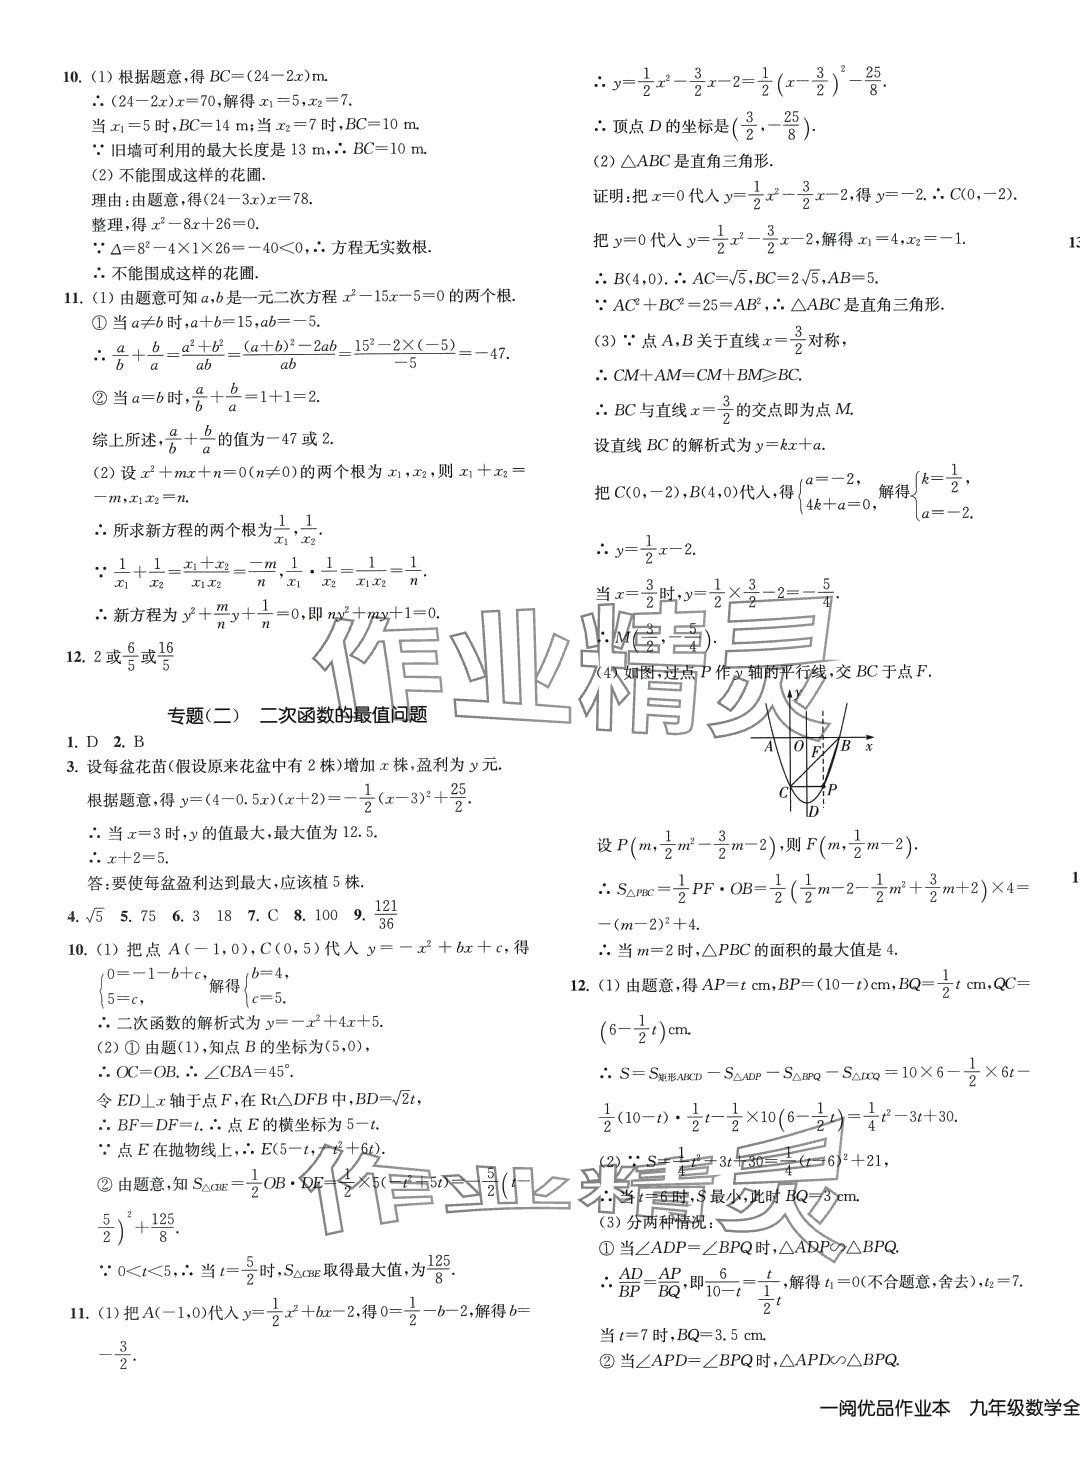 10. (1) 根据题意,得 BC=(24-2x)m.
∴ (24-2x)x=70,解得 x₁=5,x₂=7.
当 x₁=5 时,BC=14 m;当 x₂=7 时,BC=10 m.
∵ 旧墙可利用的最大长度是 13 m,∴ BC=10 m.
(2) 不能围成这样的花圃.
理由:由题意,得(24-3x)x=78.
整理,得 x²-8x+26=0.
∵ Δ=8²-4×1×26=-40<0,∴ 方程无实数根.
∴ 不能围成这样的花圃.
11. (1) 由题意可知 a,b 是一元二次方程 x²-15x-5=0 的两个根.
① 当 a≠b 时,a+b=15,ab=-5.
∴ a/b+b/a=(a²+b²)/ab=((a+b)²-2ab)/ab=(15²-2×(-5))/(-5)=-47.
② 当 a=b 时,a/b+b/a=1+1=2.
综上所述,a/b+b/a的值为-47 或 2.
(2) 设 x²+mx+n=0(n≠0)的两个根为 x₁,x₂,则 x₁+x₂=
-m,x₁x₂=n.
∴ 所求新方程的两个根为1/x₁,1/x₂.
∵ 1/x₁+1/x₂=(x₁+x₂)/(x₁x₂)=-m/n,1/x₁·1/x₂=1/(x₁x₂)=1/n.
∴ 新方程为 y²+(m/n)y+1/n=0,即 ny²+my+1=0.
12. 2 或6/5或16/5
专题(二) 二次函数的最值问题
1. D 2. B
3. 设每盆花苗(假设原来花盆中有 2 株)增加 x 株,盈利为 y 元.
根据题意,得 y=(4-0.5x)(x+2)=-1/2(x-3)²+25/2.
∴ 当 x=3 时,y 的值最大,最大值为 12.5.
∴ x+2=5.
答:要使每盆盈利达到最大,应该植 5 株.
4. √5 5. 75 6. 3 18 7. C 8. 100 9. 121/36
10. (1) 把点 A(-1,0),C(0,5)代入 y=-x²+bx+c,得
{0=-1-b+c, 5=c, 解得{b=4, c=5.
∴ 二次函数的解析式为 y=-x²+4x+5.
(2) ① 由题(1),知点 B 的坐标为(5,0),
∴ OC=OB.∴ ∠CBA=45°.
令 ED⊥x 轴于点 F,在 Rt△DFB 中,BD=√2t,
∴ BF=DF=t.∴ 点 E 的横坐标为 5-t.
∵ 点 E 在抛物线上,∴ E(5-t,-t²+6t).
② 由题意,知 S△CBE=1/2OB·DE=1/2×5(-t²+5t)=-5/2(t-
5/2)²+125/8.
∵ 0<t<5,∴ 当 t=5/2时,S△CBE取得最大值,为125/8.
11. (1) 把A(-1,0)代入 y=1/2x²+bx-2,得 0=1/2-b-2,解得 b=
-3/2.
∴ y=1/2x²-3/2x-2=1/2(x-3/2)²-25/8.
∴ 顶点 D 的坐标是(3/2,-25/8).
(2) △ABC 是直角三角形.
证明:把 x=0 代入 y=1/2x²-3/2x-2,得 y=-2.∴ C(0,-2).
把 y=0 代入 y=1/2x²-3/2x-2,解得 x₁=4,x₂=-1.
∴ B(4,0).∴ AC=√5,BC=2√5,AB=5.
∵ AC²+BC²=25=AB²,∴ △ABC 是直角三角形.
(3) ∵ 点 A,B 关于直线 x=3/2对称,
∴ CM+AM=CM+BM≥BC.
∴ BC 与直线 x=3/2的交点即为点 M.
设直线 BC 的解析式为 y=kx+a.
把 C(0,-2),B(4,0)代入,得{a=-2, 4k+a=0, 解得{k=1/2, a=-2.
∴ y=1/2x-2.
当 x=3/2时,y=1/2×3/2-2=-5/4.
∴ M(3/2,-5/4).
(4) 如图,过点 P 作 y 轴的平行线,交 BC 于点 F.
y
A O F B x
C P
D
设 P(m,1/2m²-3/2m-2),则 F(m,1/2m-2).
∴ S△PBC=1/2PF·OB=1/2(1/2m-2-1/2m²+3/2m+2)×4=
-(m-2)²+4.
∴ 当 m=2 时,△PBC 的面积的最大值是 4.
12. (1) 由题意,得 AP=t cm,BP=(10-t)cm,BQ=1/2t cm,QC=
(6-1/2t)cm.
∴ S=S矩形ABCD-S△ADP-S△BPQ-S△DCQ=10×6-1/2×6t-
1/2(10-t)·1/2t-1/2×10(6-1/2t)=1/4t²-3t+30.
(2) ∵ S=1/4t²-3t+30=1/4(t-6)²+21,
∴ 当 t=6 时,S 最小,此时 BQ=3 cm.
(3) 分两种情况:
① 当∠ADP=∠BPQ 时,△ADP∽△BPQ.
∴ AD/BP=AP/BQ,即6/(10-t)=t/(1/2t),解得 t₁=0(不合题意,舍去),t₂=7.
当 t=7 时,BQ=3.5 cm.
② 当∠APD=∠BPQ 时,△APD∽△BPQ.
13
1
一阅优品作业本 九年级数学全
作业精灵
作业精灵